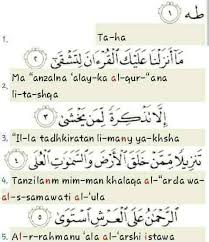 طه ١
1. Ta-ha
مَا أَنزَلْنَا عَلَيْكَ الْقُرْءَانَ لِتَشْقَىٰ ٢
2. Ma “anzalna ‘alay-ka al-qur-“ana
li-ta-shqa
إِلَّا تَذْكِرَةً لِّمَن يَخْشَىٰ ٣
3. “Il-la tadhkiratan li-many ya-khsha
تَنزِيلًا مِّمَّنْ خَلَقَ الْأَرْضَ وَالسَّمَٰوَٰتِ الْعُلَى ٤
4. Tanzilanm mim-man khalaqa al-“arda wa-
al-s-samawati al-‘ula
الرَّحْمَٰنُ عَلَى الْعَرْشِ اسْتَوَىٰ ٥
5. Al-r-rahmanu ‘ala al-‘arshi istawa